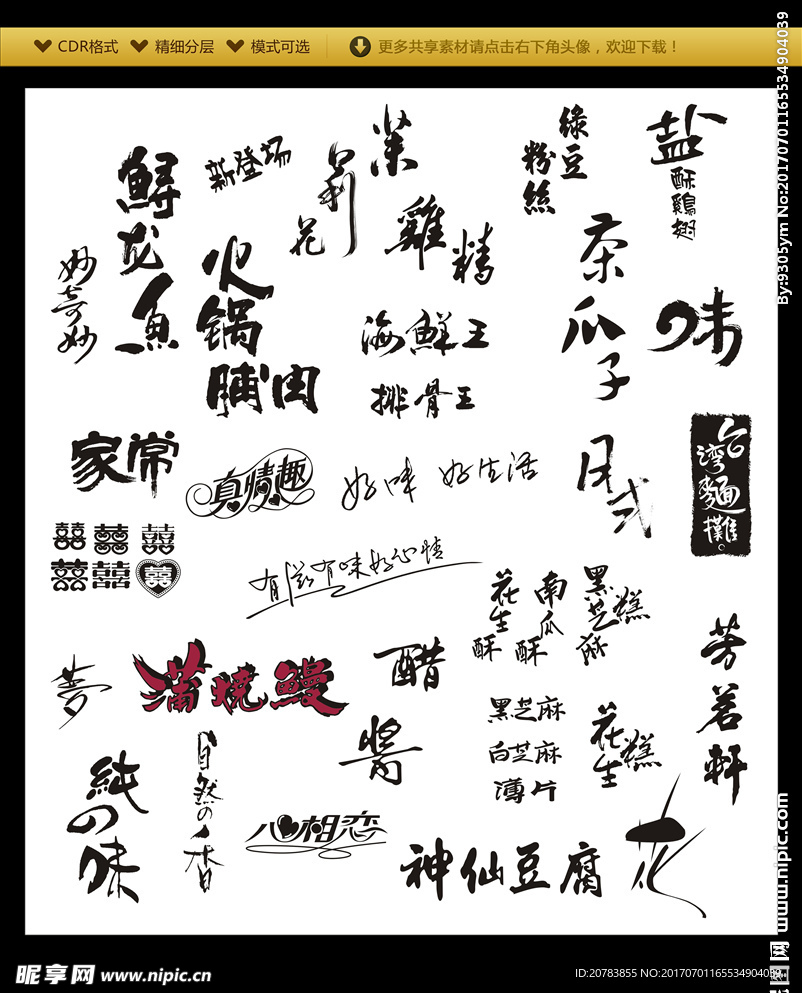 CDR格式 精细分层 模式可选 更多共享素材请点击右下角头像，欢迎下载！
By:9305ym No:20170701165534904039
鲟龙鱼
新登场
茉莉花
綠豆粉絲
盐酥鷄翅
妙奇妙
火锅
脯肉
雞精
茶瓜子
味
海鮮王
排骨王
家常
真情趣
好味 好生活
日式
台灣麵攤。
囍 囍 囍
囍 囍 囍
有滋有味好心情
花生酥
南瓜酥
黑芝麻糕
芳茗軒
夢
蒲燒鰻
醋
黑芝麻
白芝麻
薄片
花生糕
醬
純の味
自然の香
心相恋
神仙豆腐
花
昵享网 www.nipic.cn
ID:20783855 NO:20170701165534904039
www.nipic.com